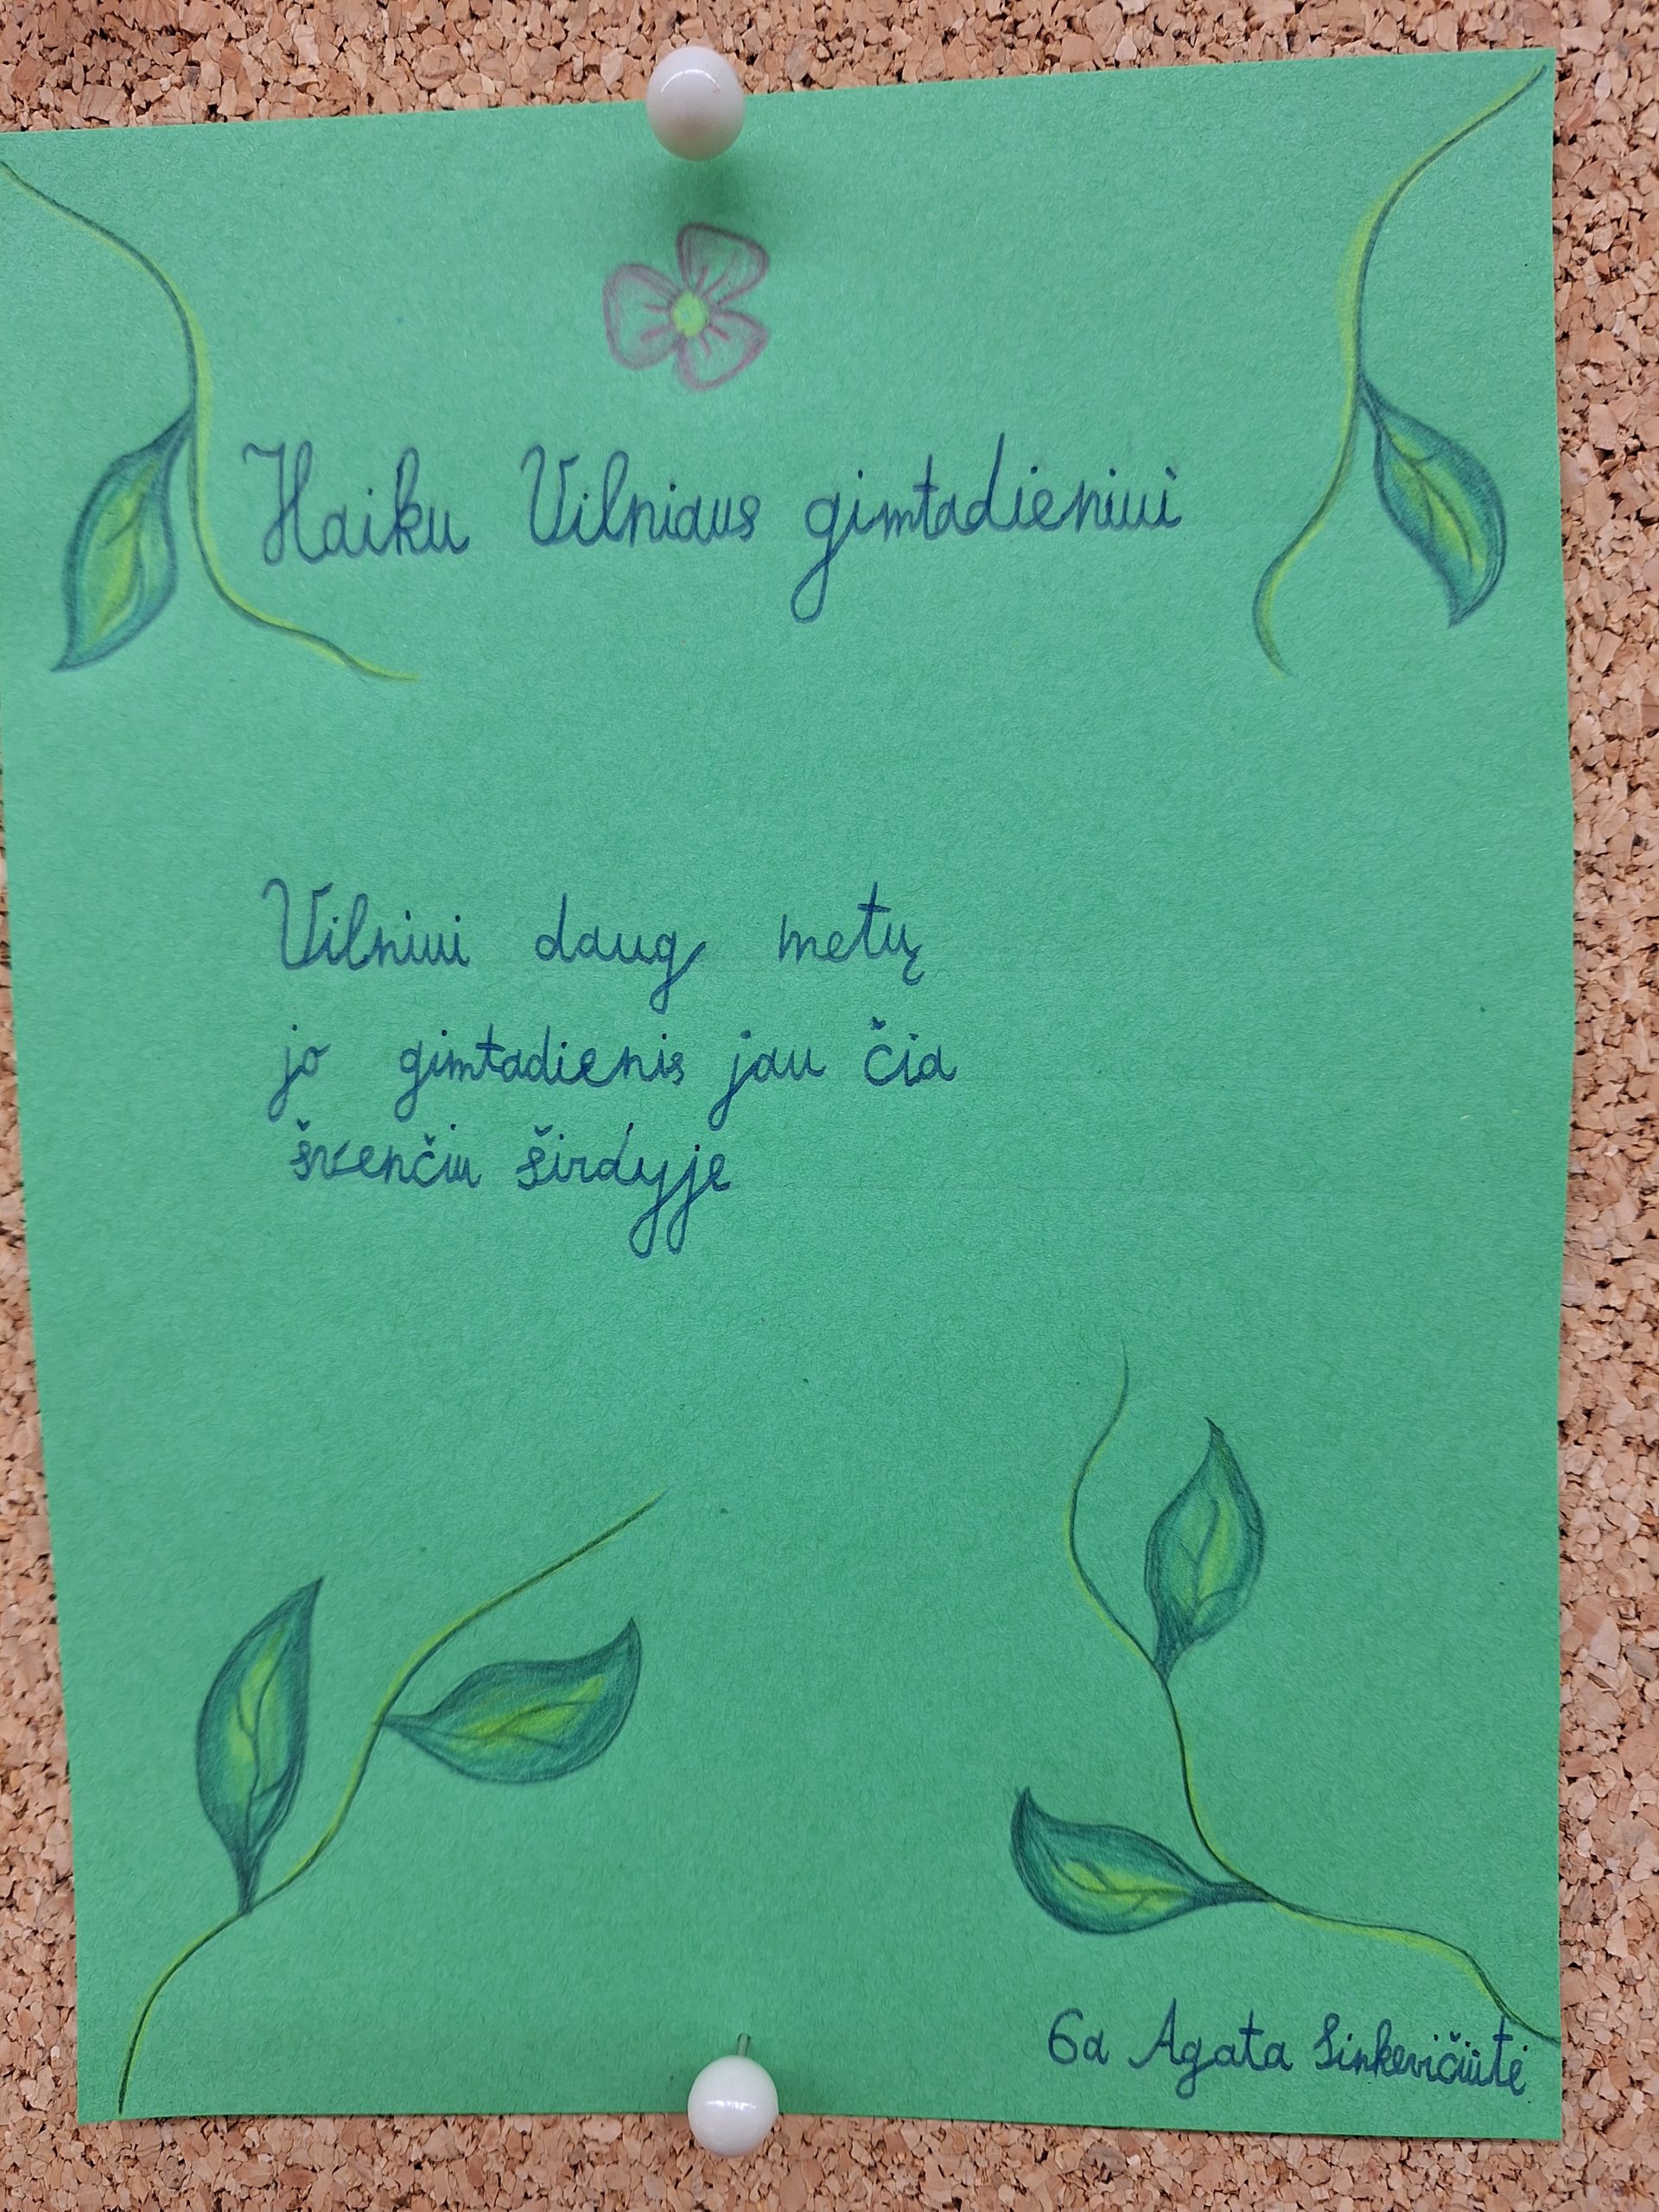 Haiku Vilniaus gimtadieniui
Vilniui daug metų
jo gimtadienis jau čia
švenčiu širdyje
6a Agata Sinkevičiūtė